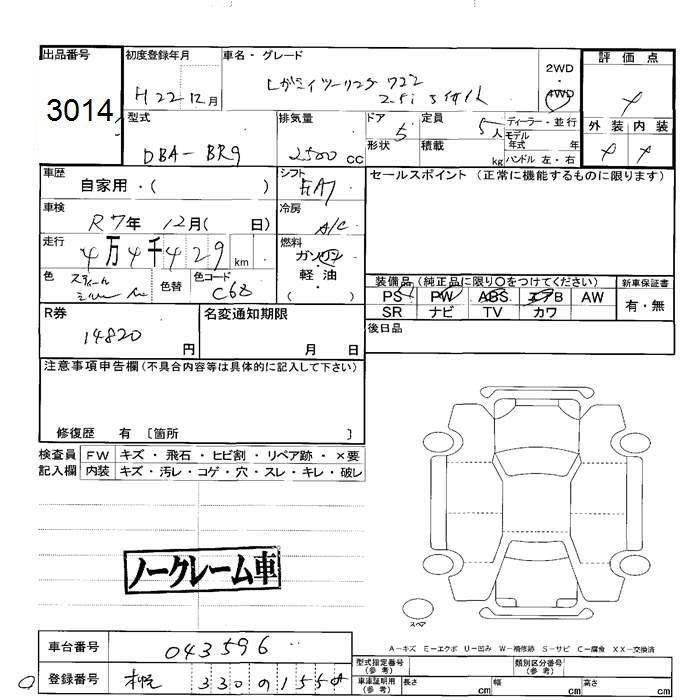 出品番号 初度登録年月 車名・グレード 評価点
3014 H22 12月 レガシィツーリングワゴン 2.5i Sスタイル 2WD
4WD
型式 排気量 ドア 定員 ディーラー・並行 外装 内装
DBA-BR9 2500 CC 5 5人 モデル
年式 年
形状 積載 kg ハンドル 左・右
車歴 シフト セールスポイント (正常に機能するものに限ります)
自家用・( )
車検 冷房
R7年 12月( 日) A/C
走行 燃料
4万4千429 km ガソリン
軽油
( )
色 スティール シルバーM 色替 色コード C6Z
装備品 (純正品に限り〇をつけてください) 新車保証書
PS PW ABS エアB AW 有・無
SR ナビ TV カワ
R券 名変通知期限 後日品
14820 円 月 日
注意事項申告欄 (不具合内容等は具体的に記入して下さい)
修復歴 有 〔箇所 〕
検査員 FW キズ・飛石・ヒビ割・リペア跡・×要
記入欄 内装 キズ・汚レ・コゲ・穴・スレ・キレ・破レ
ノークレーム車
スペア
A-キズ E-エクボ U-凹み W-補修跡 S-サビ C-腐食 XX-交換済
車台番号 043596
登録番号 330 の 155
型式指定番号
(参考) 類別区分番号
(参考)
車庫証明用
(参考) 長さ cm 幅 cm 高さ cm